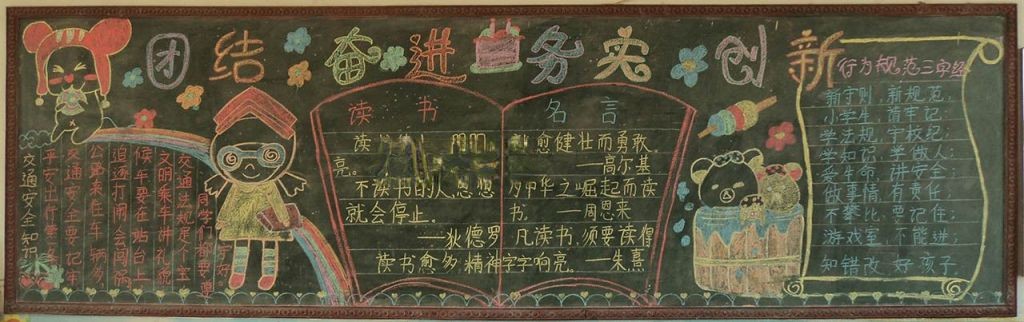 团结奋进 务实创新
读书名言
愈健壮而勇敢
亮。
——高尔基
不读书的人,思想
就会停止。
——狄德罗
之崛起而读
书。 ——周恩来
凡读书,须要读得
字字响亮。——朱熹
读书愈多,精神
行为规范三字经
新守则,新规范,
小学生,清牢记;
学法规,守校纪;
学知识,学做人;
爱生命,讲安全;
做事情,有责任;
不攀比,要记住;
游戏室,不能进;
知错改,好孩子
同学们都要
交通法规是个宝
文明乘车讲礼貌
候车要在站台上
追逐打闹会闯祸
公路来往车辆多
交通安全要记牢
交通安全知识